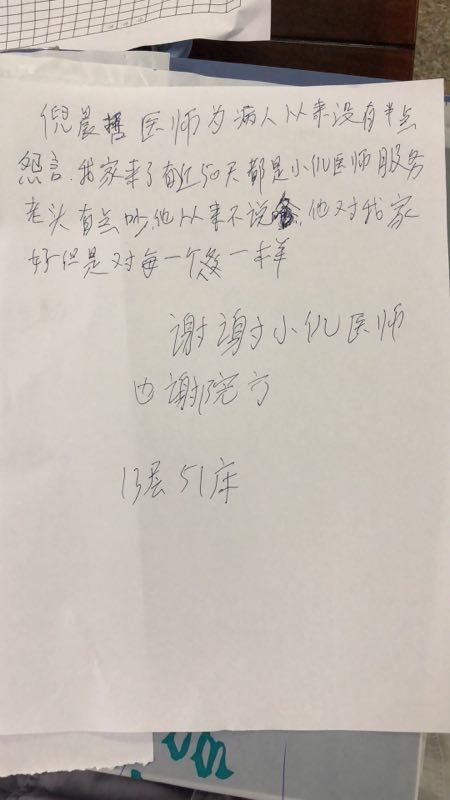 倪晨哲医师为病人以来没有半点
怨言.我家来了有近50天都是小倪医师服务
老头有点吵他以来不说 他对我家
好但是对每一个 一样
谢谢小倪医师
也谢院方
13层51床